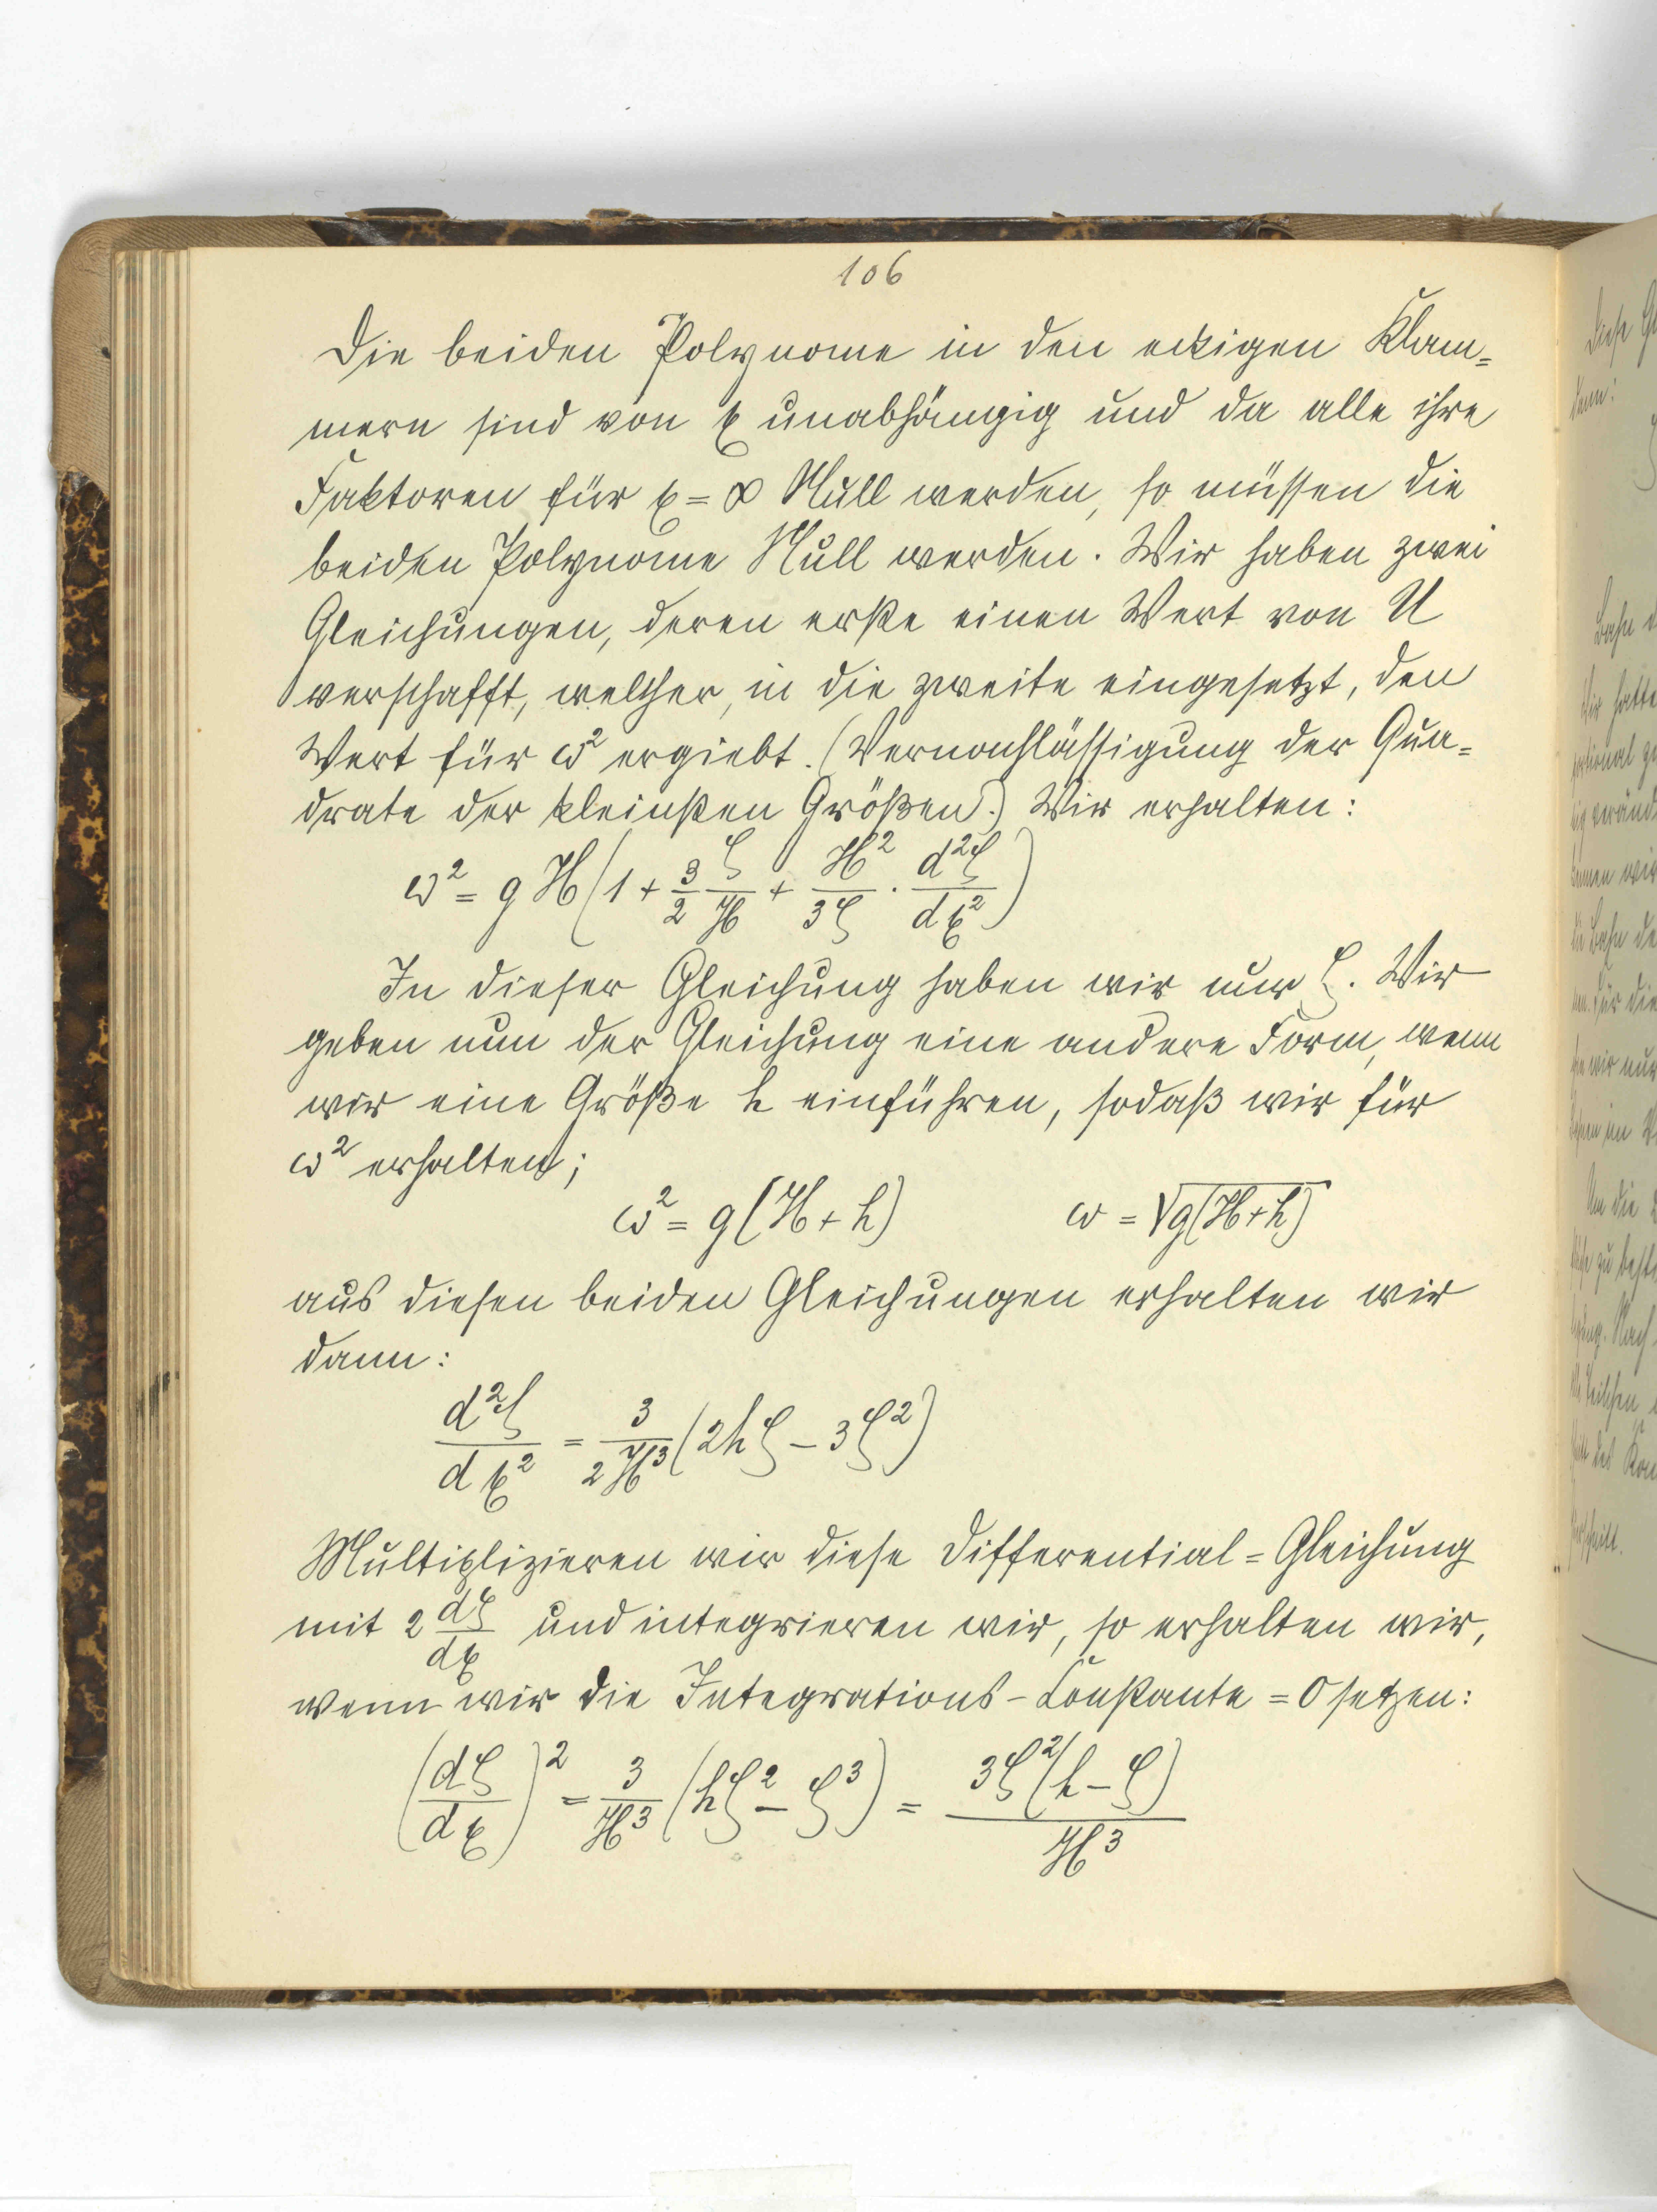 106
Die beiden Polynome in den eckigen Klam=
mern sind von ξ unabhängig und da alle ihre
Faktoren für ξ = ∞ Null werden, so müssen die
beiden Polynome Null werden. Wir haben zwei
Gleichungen, deren erste einen Wert von U
verschafft, welcher, in die zweite eingesetzt, den
Wert für ω² ergiebt. (Vernachlässigung der Qua=
drate der kleinsten Größen.) Wir erhalten:
ω² = g H (1 + 3/2 ζ/H + H²/3ζ · d²ζ/dξ²)
In dieser Gleichung haben wir nur ζ. Wir
geben nun der Gleichung eine andere Form, wenn
wir eine Größe h einführen, sodaß wir für
ω² erhalten;
ω² = g (H + h) ω = √g(H + h)
aus diesen beiden Gleichungen erhalten wir
dann:
d²ζ/dξ² = 3/2H³ (2hζ − 3ζ²)
Multiplizieren wir diese Differential=Gleichung
mit 2 dζ/dξ und integrieren wir, so erhalten wir,
wenn wir die Integrations-Constante = 0 setzen:
(dζ/dξ)² = 3/H³ (hζ² − ζ³) = 3ζ²(h − ζ)/H³